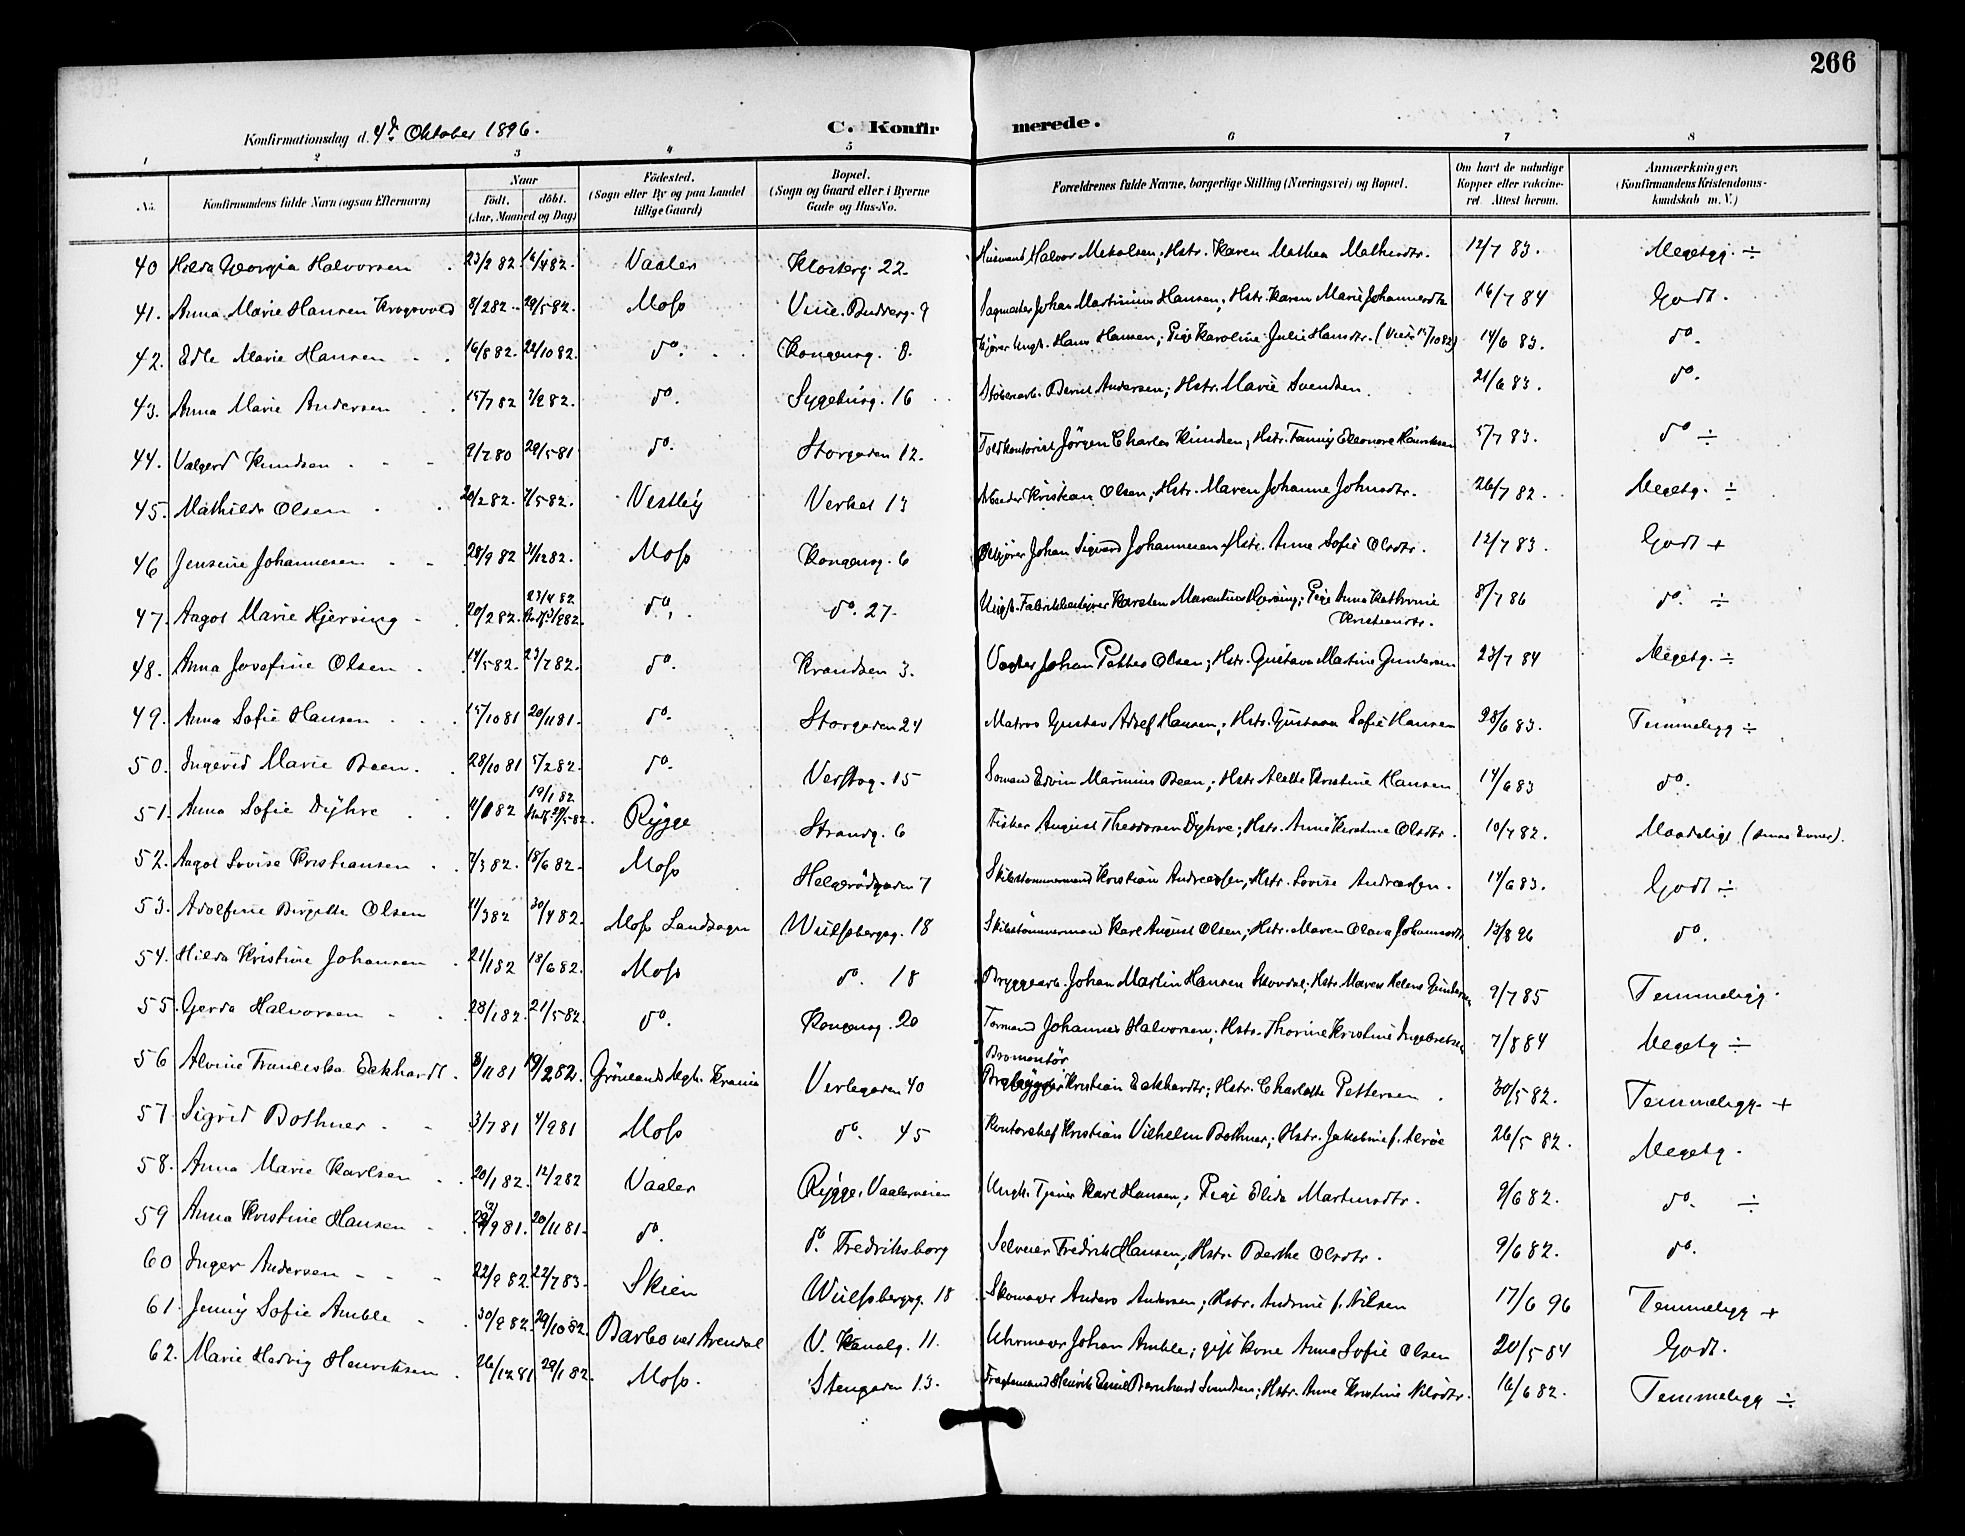 266
Konfirmationsdag d. 4de Oktober 1896.
C. Konfirmerede.
1 2 3 4 5 6 7 8
No.
Konfirmandens fulde Navn (ogsaa Efternavn)
Naar født. døbt. (Aar, Maaned og Dag)
Fødested. (Sogn eller By og paa Landet tillige Gaard)
Bopæl. (Sogn og Gaard eller i Byerne Gade og Hus-No.
Forældrenes fulde Navne, borgerlige Stilling (Næringsvei) og Bopæl.
Om havt de naturlige Kopper eller vakcineret. Attest herom.
Anmærkninger, (Konfirmandens Kristendomskundskab m. V.)
40 Hilda Georgia Halvorsen 23/2 82. 16/4 82. Vaaler Klosterg. 22. Husmand Halvor Mekalsen; Hstr. Karen Mathea Mathisdtr. 12/7 83. Megetgg. ÷
41. Anna Marie Hansen Krogsvold 8/2 82. 29/5 82. Moss Vinc. Budserg. 9 Sagmester Johan Martinius Hansen; Hstr. Karen Marie Johannesdtr 16/7 84 Godt.
42. Edle Marie Hansen 16/8 82. 22/10 82. do. Kongensg. 8. Kjører Ungk. Hans Hansen; Pige Karoline Julie Hansdtr. (Viet 15/10 82) 14/6 83. do.
43. Anna Marie Andersen 15/7 82 3/9 82. do. Sygehusg. 16 Støberiarb. Bernt Andersen; Hstr. Marie Svendsen 21/6 83. do.
44. Valgerd Knudsen 9/7 80 29/5 81 do. Storgaden 12. Toldkontorist Jørgen Charles Knudsen; Hstr. Fanny Eleonore Henriksen 5/7 83. do ÷
45. Mathilde Olsen 20/2 82. 7/5 82. Vestby Verket 13 Arbeider Kristian Olsen; Hstr. Maren Johanne Johnsdtr. 26/7 82. Megetg. ÷
46 Jensine Johannesen 28/9 82 31/12 82. Moss Kongensg. 6 Johan Sigvard Johannesen; Hstr. Anne Sofie Olsdtr. 12/7 83. Godt +
47. Aagot Marie Hjersing 20/2 82. 23/4 82 do. do. 27. Ungk. Fabrikbestyrer Karsten Marentius Hjersing; Pige Anna Kathrine Kristiansdtr. 8/7 86 do. ÷
48. Anna Josefine Olsen 14/5 82. 23/7 82. do. Krandsen 3. Vægter Johan Petter Olsen; Hstr. Gustava Martine Gundersen 23/7 84 Megetg. ÷
49. Anna Sofie Hansen 15/10 81 20/11 81. do. Storgaden 24 Matros Gustav Adolf Hansen; Hstr. Gustava Sofie Hansen 28/6 83. Temmeligg ÷
50. Ingerid Marie Been. 28/10 81 5/2 82. do. Verftsg. 15 Sømand Edvin Marinius Been; Hstr. Alette Kristine Hansen 14/6 83 do.
51. Anna Sofie Dyhre 4/1 82 19/1 82 Stadf. 29/5 82. Rygge Strandg. 6 Fisker August Theodorsen Dyhre; Hstr. Anne Kirstine Olsdtr. 10/7 82. Maadeligt (smaa Evner).
52. Aagot Lovise Kristiansen 7/3 82. 18/6 82. Moss Helgerødgaden 7 Skibstømmermand Kristian Andreassen; Hstr. Lovise Andreassen. 14/6 83. Godt ÷
53. Adolfine Birgitte Olsen 11/3 82 30/4 82. Moss Landsogn Wulfsbergsg. 18 Skibstømmermand Karl August Olsen; Hstr. Maren Olava Johannesdtr 13/8 96 do.
54. Hilda Kristine Johansen 21/1 82 18/6 82. Moss do. 18 Bryggearb. Johan Martin Hansen Skovdal; Hstr. Maren Helene Gundersen 9/7 85 Temmeligg.
55. Gerda Halvorsen 28/1 82. 21/5 82. do. Kongensg. 20 Tømmand Johannes Halvorsen; Hstr. Thorine Kristine Ingebretsen 7/8 84 Megetg ÷
56 Alvine Franciska Eckhardt. 8/11 81 19/2 82. Grønlands Mgh. Krania Verlegaden 40 Bromontør Kristian Eckhardt; Hstr. Charlotte Pettersen 30/5 82. Temmeligg. +
57. Sigrid Bothner 3/7 81 4/9 81 Moss do. 45 Kontorchef Kristian Vilhelm Bothner; Hstr. Jakobine f. Alrøe 26/5 82. Megetg.
58. Anna Marie Karlsen 20/1 82. 12/2 82 Vaaler Rygge. Vaalerveien Ungk. Tjener Karl Hansen; Pige Elida Martinsdtr. 9/6 82. do. ÷
59 Anna Kristine Hansen 9 81. 20/11 81. do. do. Fredriksborg Selveier Fredrik Hansen; Hstr. Berthe Olsdtr. 9/6 82. do.
60 Inger Andersen 22/9 82. 22/7 83. Skien Wulfsbergsg. 18 Skomager Anders Andersen; Hstr. Andrine f. Nilsen 17/6 96 Temmeligg +
61. Jenny Sofie Amble 30/9 82. 29/10 82. Barbo ved Arendal V. Kanalg. 11. Uhrmager Johan Amble; gift Kone Anna Sofie Olsen 20/5 84 Godt.
62. Marie Hedvig Henriksen 26/12 81 29/1 82. Moss. Stengaden 13. Fragtemand Henrik Emil Bernhard Svendsen; Hstr. Anne Kristine Nilsdtr. 16/6 82. Temmeligg ÷